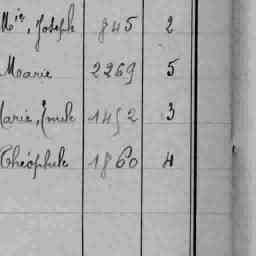 Mie, Joseph 845 2
Marie 2269 5
Marie, Émile 1452 3
Théophile 1860 4